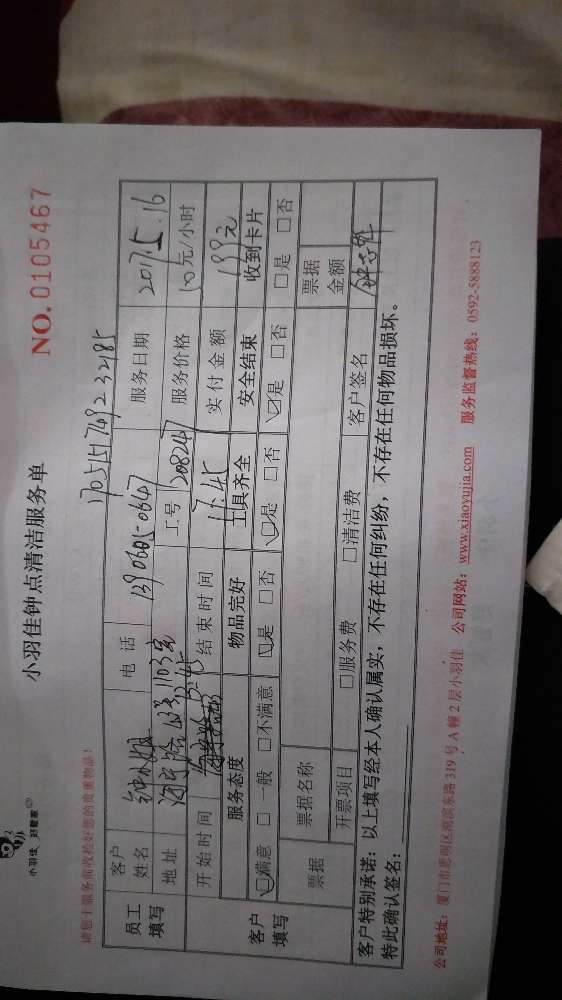 小羽佳 好管家
小羽佳钟点清洁服务单
NO. 0105467
请您于服务前收捡好您的贵重物品!
员工填写
客户姓名 钟小姐 电话 服务日期 2017.5.16
地址 1103室 工号 208247 服务价格 元/小时
开始时间 结束时间 17:45 实付金额 元
客户填写
服务态度 物品完好 工具齐全 安全结束 收到卡片
☑满意 □一般 □不满意 ☑是 □否 ☑是 □否 ☑是 □否 □是 □否
票据 票据名称 票据金额
开票项目 □服务费 □清洁费
客户签名
客户特别承诺:以上填写经本人确认属实,不存在任何纠纷,不存在任何物品损坏。
特此确认签名:
公司地址:厦门市思明区湖滨东路319号A幢2层小羽佳 公司网站:www.xiaoyujia.com 服务监督热线:0592-5888123